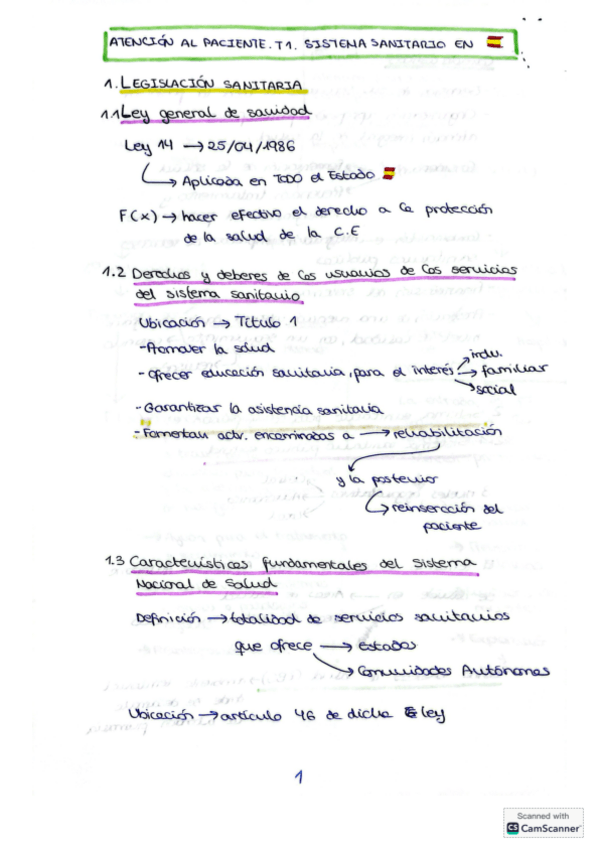 ATENCIÓN AL PACIENTE. T1. SISTEMA SANITARIO EN 🇪🇸
1. LEGISLACIÓN SANITARIA
1.1 Ley general de sanidad
Ley 14 → 25/04/1986
→ Aplicada en TODO el Estado 🇪🇸
F(x) → hacer efectivo el derecho a la protección
de la salud de la C.E
1.2 Derechos y deberes de los usuarios de los servicios
del sistema sanitario
Ubicación → Título 1
- Promover la salud
- Ofrecer educación sanitaria, para el interés → indiv.
→ familiar
→ social
- Garantizar la asistencia sanitaria
- Fomentan activ. encaminadas a → rehabilitación
y la posterior
→ reinserción del
paciente
1.3 Características fundamentales del Sistema
Nacional de Salud
Definición → totalidad de servicios sanitarios
que ofrece → Estados
→ Comunidades Autónomas
Ubicación → artículo 46 de dicha ley
1
Scanned with
CS CamScanner